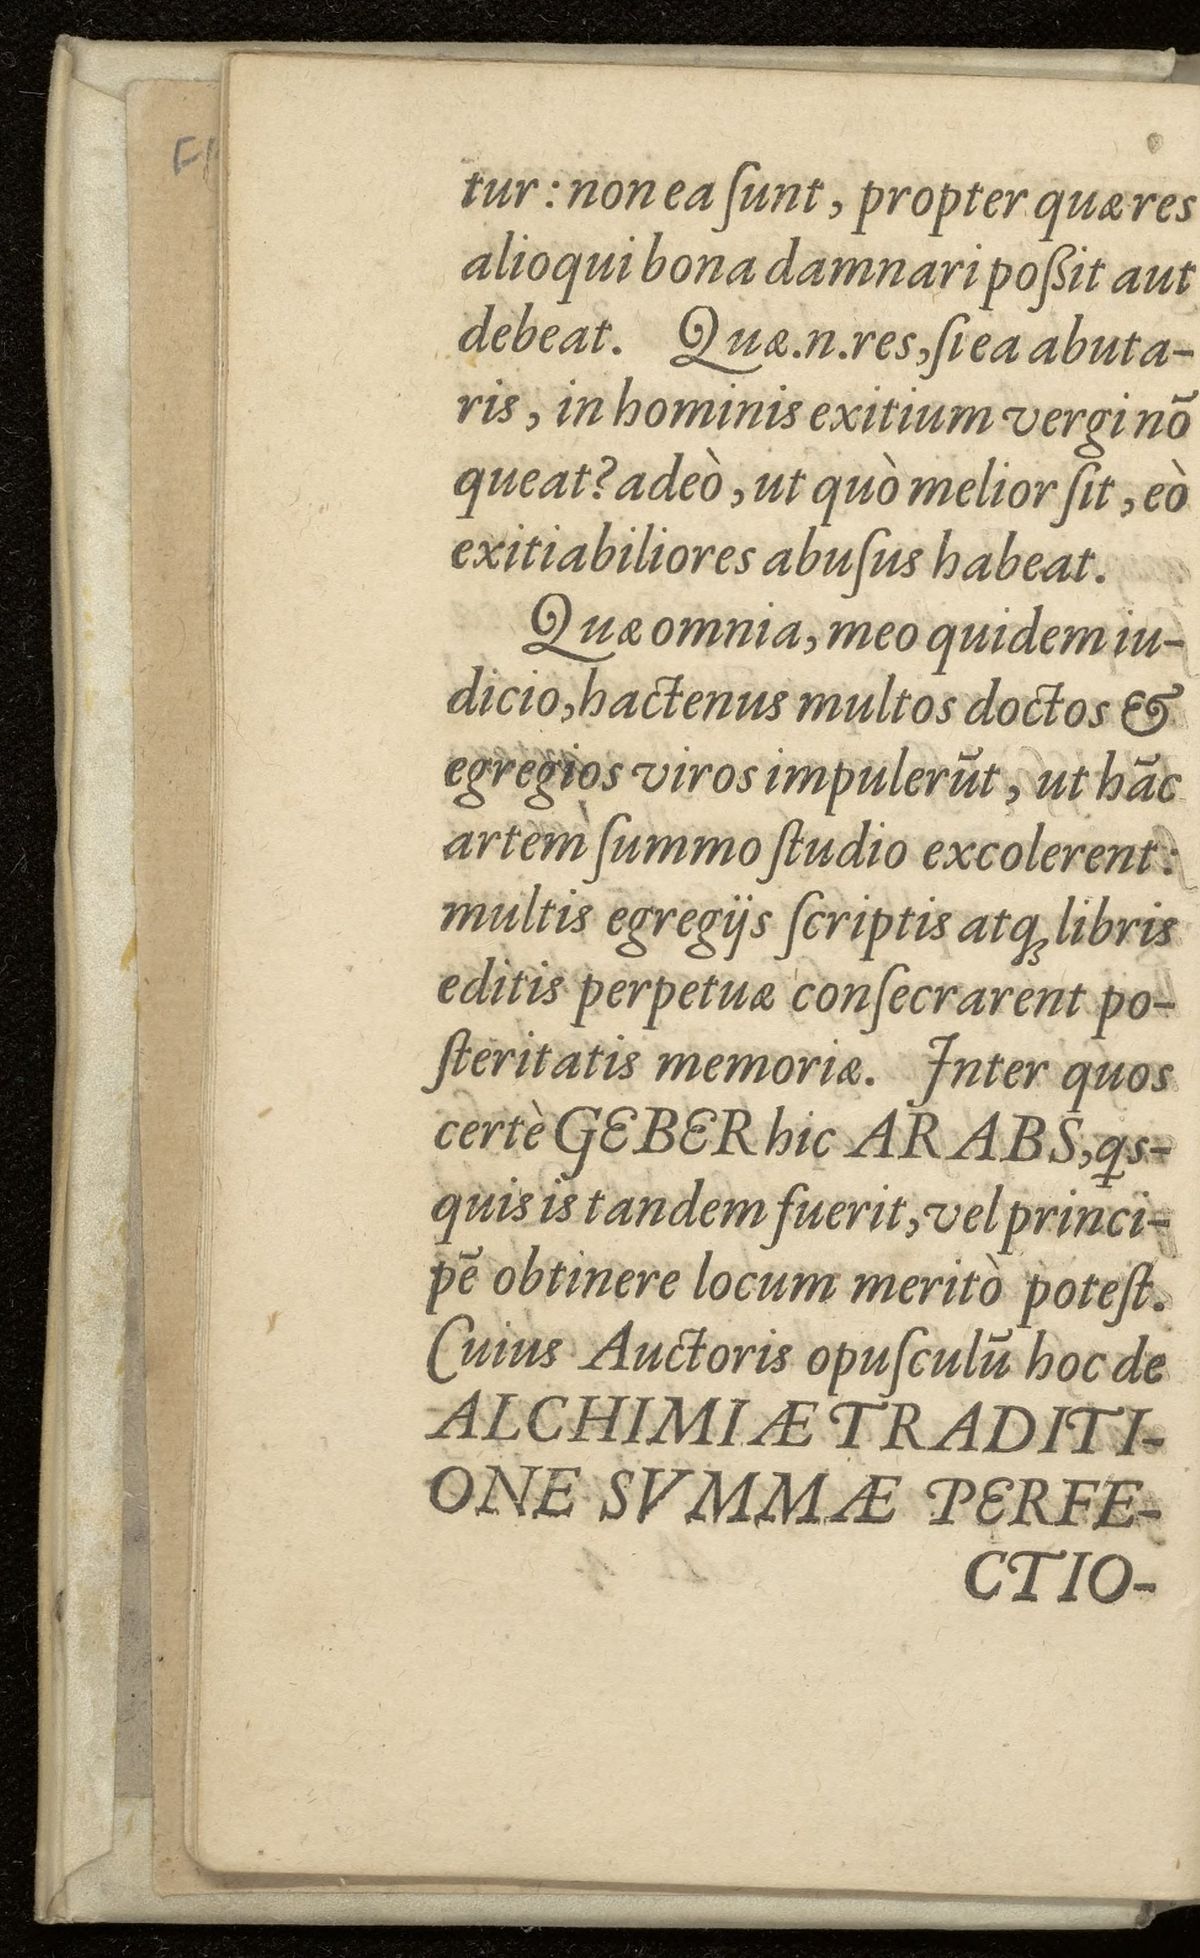 tur: non ea ſunt, propter quæ res
alioqui bona damnari poßit aut
debeat. Quæ.n.res, ſi ea abuta-
ris, in hominis exitium vergi nō
queat? adeò, ut quò melior ſit, eò
exitiabiliores abuſus habeat.
Quæ omnia, meo quidem iu-
dicio, hactenus multos doctos &
egregios viros impulerūt, ut hāc
artem ſummo ſtudio excolerent:
multis egregijs ſcriptis atqꝫ libris
editis perpetuæ conſecrarent po-
ſteritatis memoriæ. Inter quos
certè GEBER hic ARABS, ꝗs-
quis is tandem fuerit, vel princi-
pē obtinere locum meritò poteſt.
Cuius Auctoris opuſculū hoc de
ALCHIMIÆ TRADITI-
ONE SVMMÆ PERFE-
CTIO-